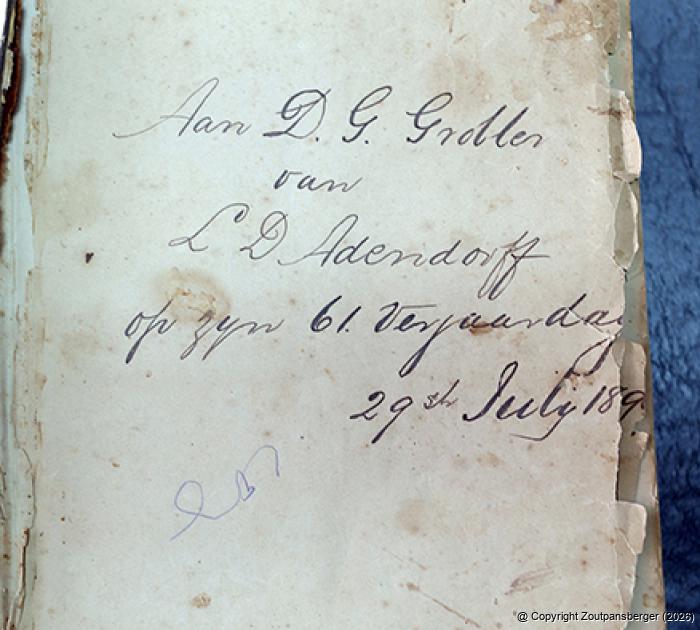 Aan D. G. Grobler
van
L D Adendorff
op zyn 61. Verjaardag
29sth July 189
@ Copyright Zoutpansberger (2026)